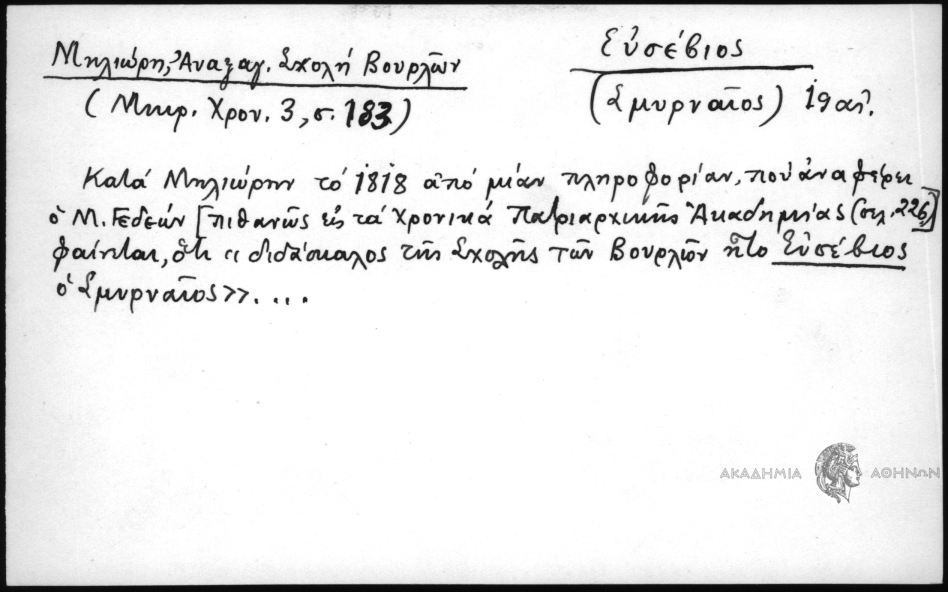 Μηλιώρη, Ἀναξαγ. Σχολή Βουρλῶν
(Μικρ. Χρον. 3, σ. 183)
Εὐσέβιος
(Σμυρναῖος) 19 αἰ.
Κατά Μηλιώρην τό 1818 ἀπό μίαν πληροφορίαν, πού ἀναφέρει
ὁ Μ. Γεδεών [πιθανῶς εἰς τά Χρονικά Πατριαρχικῆς Ἀκαδημίας (σελ. 226)]
φαίνεται, ὅτι «διδάσκαλος τῆς Σχολῆς τῶν Βουρλῶν ἦτο Εὐσέβιος
ὁ Σμυρναῖος»....
ΑΚΑΔΗΜΙΑ ΑΘΗΝΩΝ